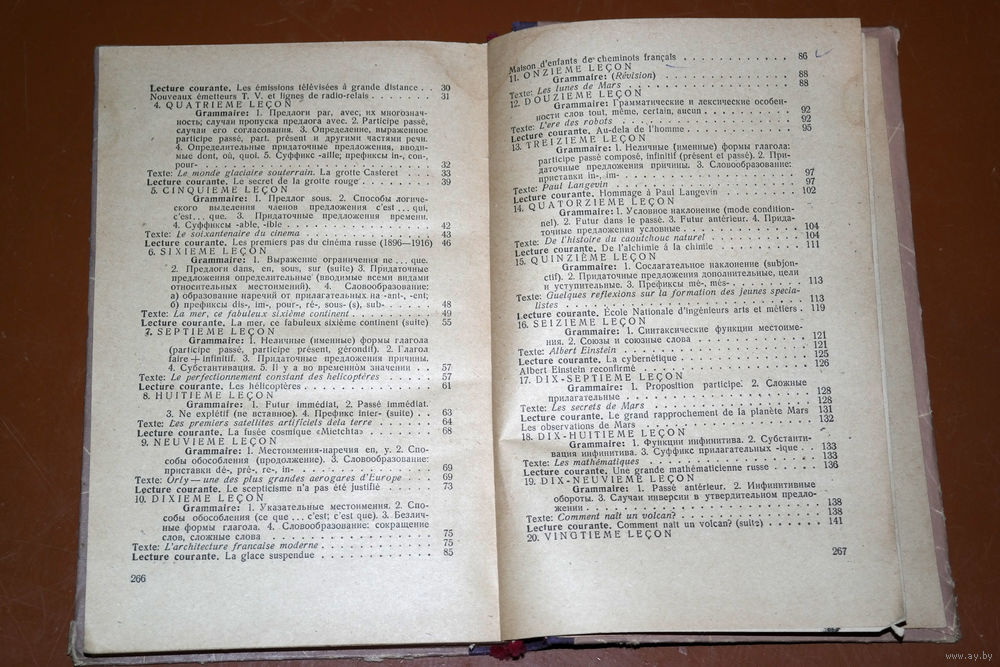 Lecture courante. Les émissions télévisées à grande distance . . 30
Nouveaux émetteurs T. V. et lignes de radio-relais . . . . . . . 31
4. QUATRIEME LEÇON
Grammaire: 1. Предлоги par, avec, их многознач-
ность; случаи пропуска предлога avec. 2. Participe passé,
случаи его согласования. 3. Определение, выраженное
participe passé, part. présent и другими частями речи.
4. Определительные придаточные предложения, вводи-
мые dont, où, quoi. 5. Суффикс -aille; префиксы in-, con-,
pour- . . . . . . . . . . . . . . . . . . . . . . . . . . 32
Texte: Le monde glaciaire souterrain. La grotte Casteret . . . . 33
Lecture courante. Le secret de la grotte rouge . . . . . . . . . 39
5. CINQUIEME LEÇON
Grammaire: 1. Предлог sous. 2. Способы логи-
ческого выделения членов предложения c'est ... qui,
c'est ... que. 3. Придаточные предложения времени.
4. Суффиксы -able, -ible . . . . . . . . . . . . . . . . 42
Texte: Le soixantenaire du cinema . . . . . . . . . . . . . . 43
Lecture courante. Les premiers pas du cinéma russe (1896—1916) 46
6. SIXIEME LEÇON
Grammaire: 1. Выражение ограничения ne ... que.
2. Предлоги dans, en, sous, sur (suite) 3. Придаточные
предложения определительные (вводимые всеми видами
относительных местоимений). 4. Словообразование:
а) образование наречий от прилагательных на -ant-, -ent;
б) префиксы dis-, im-, pour-, ré-, sous- (s), sub- . . . . . 48
Texte: La mer, ce fabuleux sixième continent . . . . . . . . . 49
Lecture courante. La mer, ce fabuleux sixième continent (suite) 55
7. SEPTIEME LEÇON
Grammaire: 1. Неличные (именные) формы глагола
(participe passé, participe présent, gérondif). 2. Глагол
faire + infinitif. 3. Придаточные предложения причины.
4. Субстантивация. 5. Il y a во временном значении . . . 57
Texte: Le perfectionnement constant des hélicoptères . . . . . 57
Lecture courante. Les hélicoptères . . . . . . . . . . . . . . 61
8. HUITIEME LEÇON
Grammaire: 1. Futur immédiat, 2. Passé immédiat.
3. Ne explétif (не вставное). 4. Префикс inter- (suite) . . 63
Texte: Les premiers satellites artificiels dela terre . . . . . . 64
Lecture courante. La fusée cosmique «Mietchta» . . . . . . . . 68
9. NEUVIEME LEÇON
Grammaire: 1. Местоимения-наречия en, y. 2. Спо-
собы обособления (продолжение). 3. Словообразование:
приставки dé-, pré-, re-, in- . . . . . . . . . . . . . . 69
Texte: Orly — une des plus grandes aerogares d'Europe . . . . 69
Lecture courante. Le scepticisme n'a pas été justifié . . . . . . 73
10. DIXIEME LEÇON
Grammaire: 1. Указательные местоимения. 2. Спо-
собы обособления (ce que ... c'est; c'est que). 3. Безлич-
ные формы глагола. 4. Словообразование: сокращение
слов, сложные слова . . . . . . . . . . . . . . . . . . 75
Texte: L'architecture francaise moderne . . . . . . . . . . . . 75
Lecture courante. La glace suspendue . . . . . . . . . . . . . 85
266
Maison d'enfants de cheminots français . . . . . . . . . . . . 86
11. ONZIEME LEÇON
Grammaire: (Révision) . . . . . . . . . . . . . . . . 88
Texte: Les lunes de Mars . . . . . . . . . . . . . . . . . . . 88
12. DOUZIEME LEÇON
Grammaire: Грамматические и лексические особен-
ности слов tout, même, certain, aucun . . . . . . . . . . 92
Texte: L'ere des robots . . . . . . . . . . . . . . . . . . . 92
Lecture courante. Au-dela de l'homme . . . . . . . . . . . . . 95
13. TREIZIEME LEÇON
Grammaire: 1. Неличные (именные) формы глагола:
participe passé composé, infinitif (présent et passé). 2. При-
даточные предложения причины. 3. Словообразование:
приставки in-, im- . . . . . . . . . . . . . . . . . . . 97
Texte: Paul Langevin . . . . . . . . . . . . . . . . . . . . . 97
Lecture courante. Hommage à Paul Langevin . . . . . . . . . . 102
14. QUATORZIEME LEÇON
Grammaire: 1. Условное наклонение (mode condition-
nel). 2. Futur dans le passé. 3. Futur antérieur. 4. Прида-
точные предложения условные . . . . . . . . . . . . . . 104
Texte: De l'histoire du caoutchouc naturel . . . . . . . . . . . 104
Lecture courante. De l'alchimie à la chimie . . . . . . . . . . 111
15. QUINZIÈME LEÇON
Grammaire: 1. Сослагательное наклонение (subjon-
ctif). 2. Придаточные предложения дополнительные, цели
и уступительные. 3. Префиксы mé-, més- . . . . . . . . . 113
Texte: Quelques reflexions sur la formation des jeunes specia-
listes . . . . . . . . . . . . . . . . . . . . . . . . . 113
Lecture courante. École Nationale d'ingénieurs arts et métiers . 119
16. SEIZIEME LEÇON
Grammaire: 1. Синтаксические функции местоиме-
ния. 2. Союзы и союзные слова . . . . . . . . . . . . . 121
Texte: Albert Einstein . . . . . . . . . . . . . . . . . . . . 121
Lecture courante. La cybernétique . . . . . . . . . . . . . . . 125
Albert Einstein reconfirmé . . . . . . . . . . . . . . . . . . 126
17. DIX-SEPTIEME LEÇON
Grammaire: 1. Proposition participe. 2. Сложные
прилагательные . . . . . . . . . . . . . . . . . . . . 128
Texte: Les secrets de Mars . . . . . . . . . . . . . . . . . . 128
Lecture courante. Le grand rapprochement de la planète Mars 131
Les observations de Mars . . . . . . . . . . . . . . . . . . . 132
18. DIX-HUITIEME LEÇON
Grammaire: 1. Функции инфинитива. 2. Субстанти-
вация инфинитива. 3. Суффикс прилагательных -ique . . . 133
Texte: Les mathématiques . . . . . . . . . . . . . . . . . . . 133
Lecture courante. Une grande mathématicienne russe . . . . . . 136
19. DIX-NEUVIEME LEÇON
Grammaire: 1. Passé antérieur. 2. Инфинитивные
обороты. 3. Случаи инверсии в утвердительном предло-
жении . . . . . . . . . . . . . . . . . . . . . . . . . 138
Texte: Comment naît un volcan? . . . . . . . . . . . . . . . . 138
Lecture courante. Comment naît un volcan? (suite) . . . . . . . 141
20. VINGTIEME LEÇON
267
www.ay.by